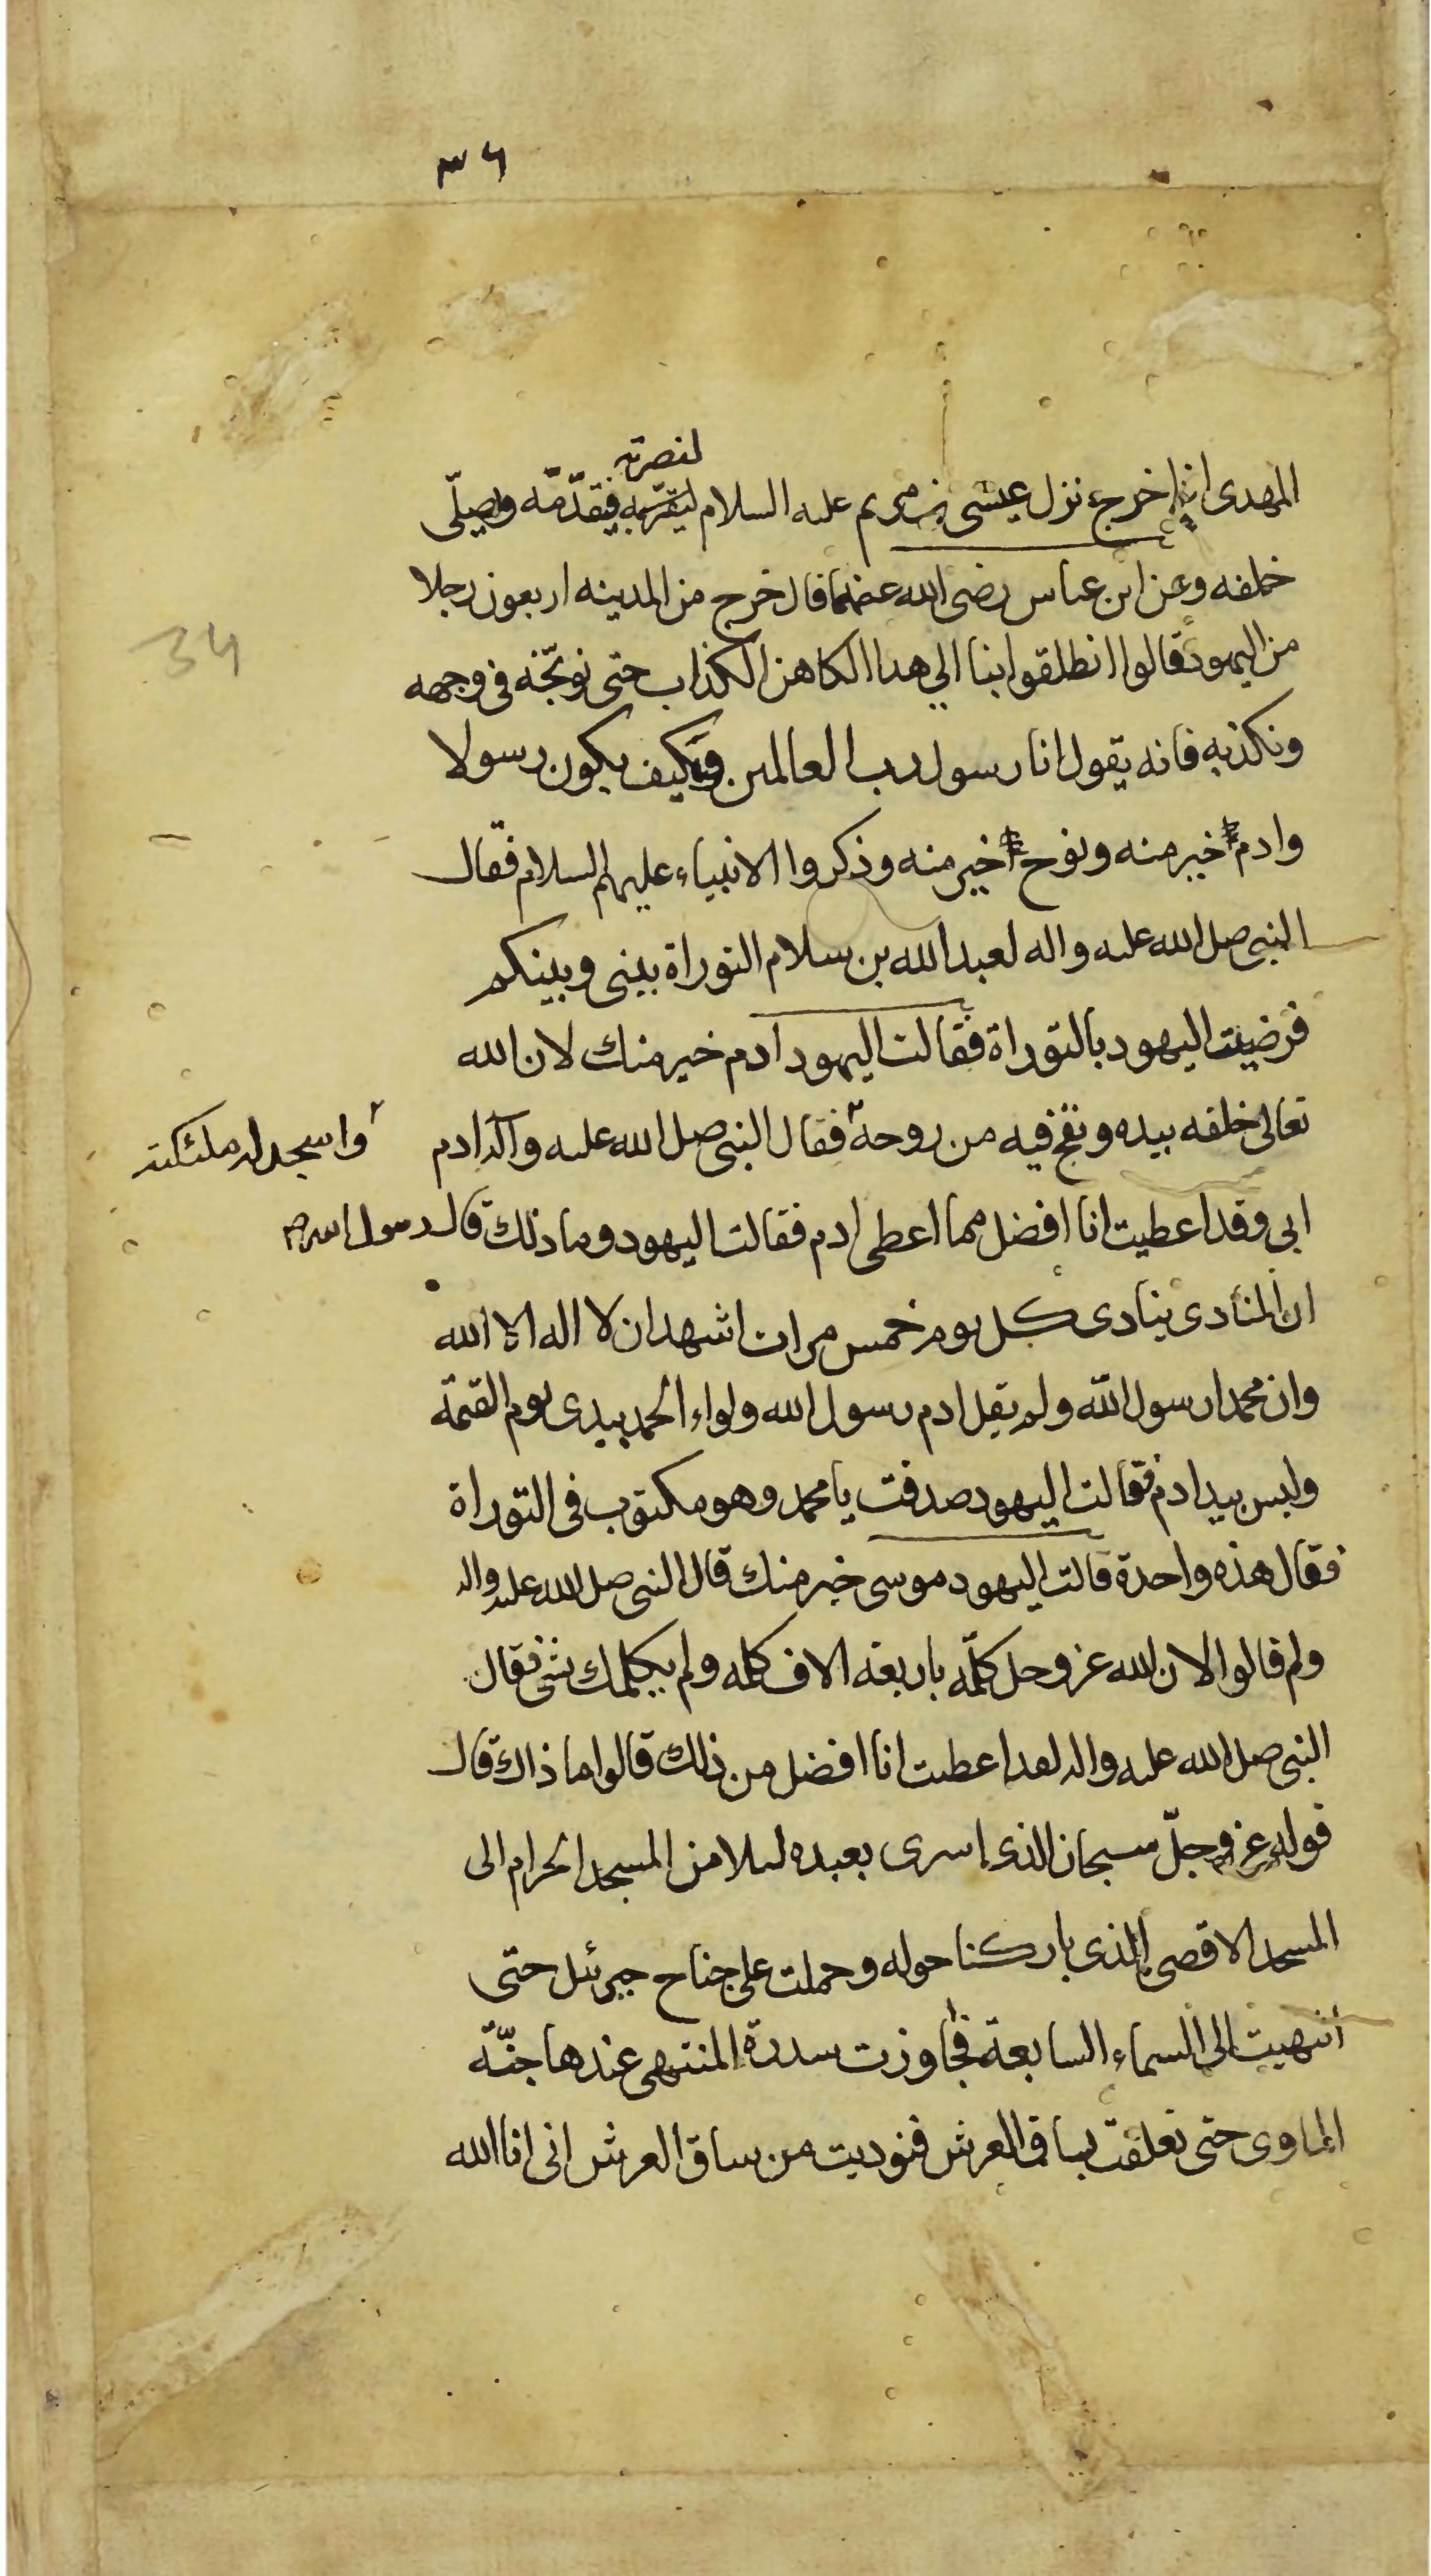 ٣٤
لنصرته
المهدى اذا خرج نزل عيسى بن مريم عليه السلام فيقدّمه ويصلّى
34
خلفه وعن ابن عباس رضى الله عنهما قال خرج من المدينه اربعون رجلا
من اليهود قالوا انطلقوا بنا الي هدا الكاهن الكذاب حتى نوبّخه فى وجهه
ونكذبه فانه يقول انا رسول رب العالمين وكيف يكون رسولا
وادم خير منه ونوح خير منه وذكروا الانبياء عليهم السلام فقال
النبى صلى الله عليه واله لعبدالله بن سلام التوراة بينى وبينكم
فرضيت اليهود بالتوراة فقالت اليهود ادم خير منك لان الله
تعالى خلقه بيده ونفخ فيه من روحه فقال النبى صلى الله عليه وآله ادم
واسجد له ملئكته
ابى وقد اعطيت انا افضل مما اعطى ادم فقالت اليهود وما ذلك قال رسول الله ص
ان المنادى ينادى كل يوم خمس مرات اشهد ان لا اله الا الله
وان محمدا رسول الله ولم يقل ادم رسول الله ولواء الحمد بيدى يوم القيمة
وليس بيد ادم فقالت اليهود صدقت يا محمد وهو مكتوب فى التوراة
فقال هذه واحدة قالت اليهود موسى خير منك قال النبى صلى الله عليه واله
ولم قالوا لان الله عز وجل كلّمه باربعة الاف كلمه ولم يكلمك بشئ فقال
النبى صلى الله عليه واله لقد اعطيت انا افضل من ذلك قالوا ما ذاك قال
قوله عز وجلّ سبحان الذى اسرى بعبده ليلا من المسجد الحرام الى
المسجد الاقصى الذى باركنا حوله وحملت على جناح جبرئيل حتى
انتهيت الى السماء السابعة فجاوزت سدرة المنتهى عندها جنّة
الماوى حتى تعلقت بساق العرش فنوديت من ساق العرش انى انا الله